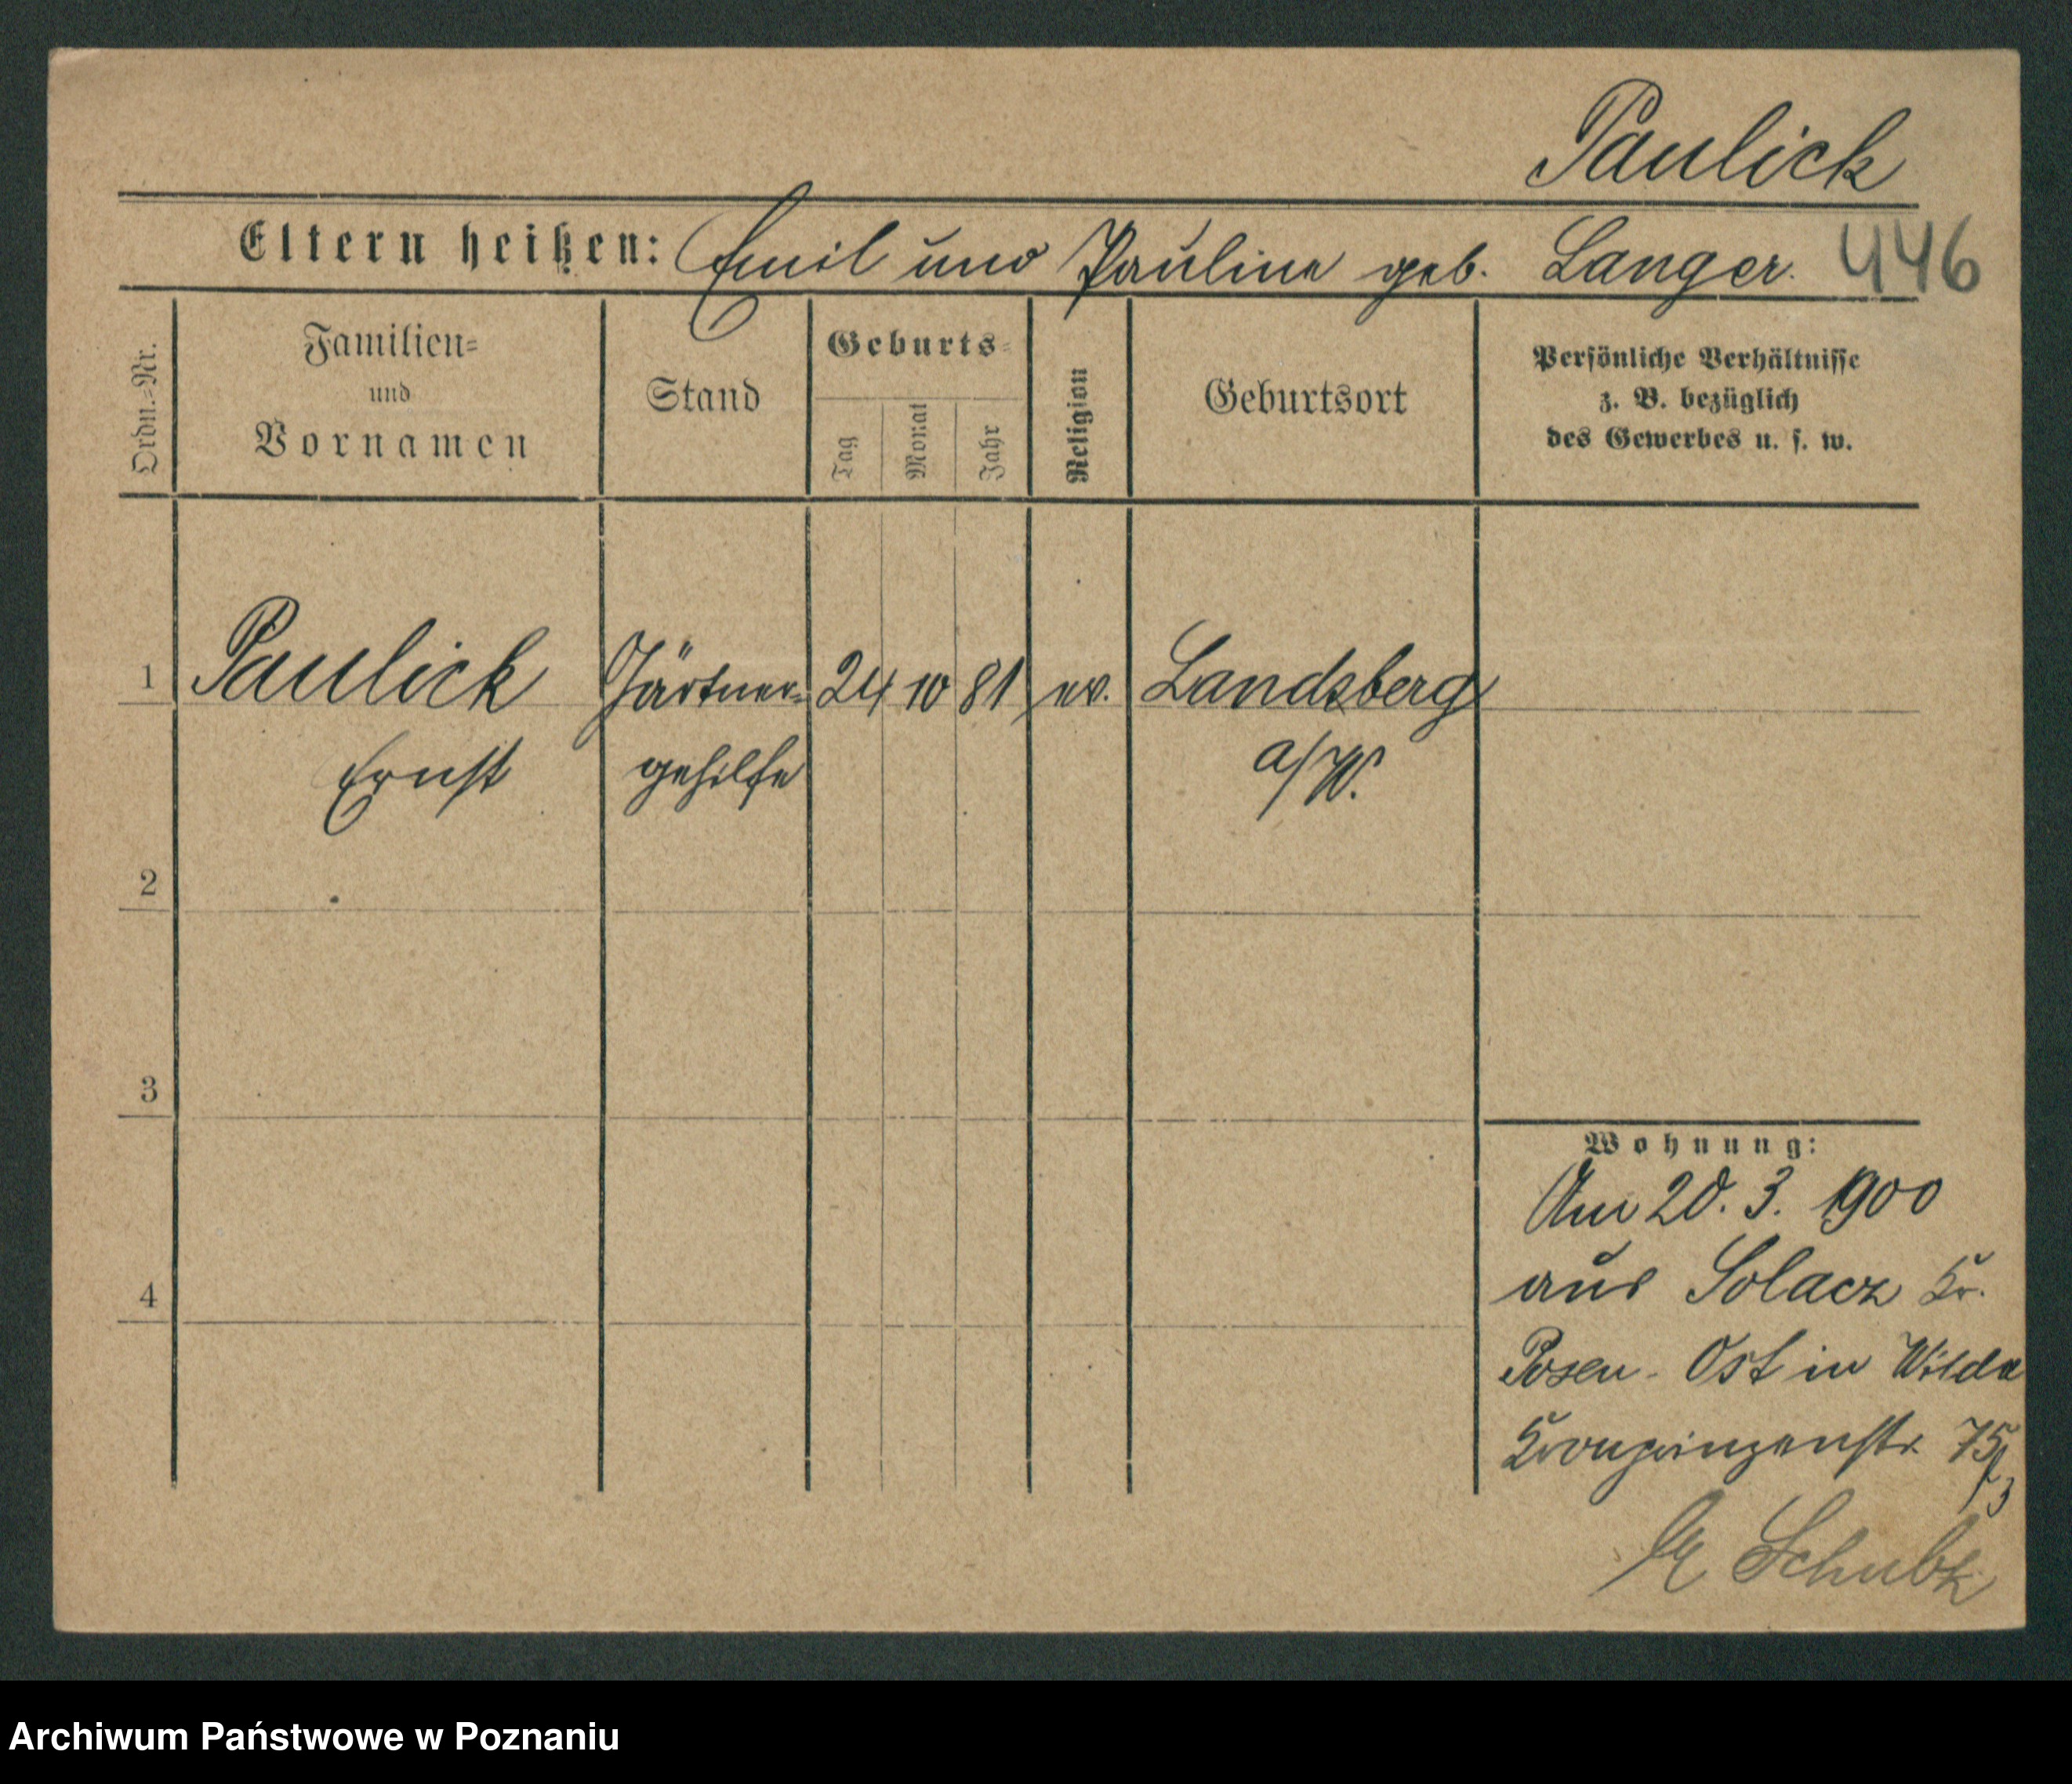 Paulick
Eltern heißen: Emil und Pauline geb. Langer. 446
Ordn.-Nr.
Familien-
und
Vornamen
Stand
Geburts-
Tag
Monat
Jahr
Religion
Geburtsort
Persönliche Verhältnisse
z. B. bezüglich
des Gewerbes u. s. w.
1 Paulick Gärtner- 24 10 81 ev. Landsberg
Ernst gehilfe a/W.
2
3
4
Wohnung:
Am 20. 3. 1900
aus Solacz Kr.
Posen-Ost in Wilda
Kronprinzenstr. 75/3
Archiwum Państwowe w Poznaniu